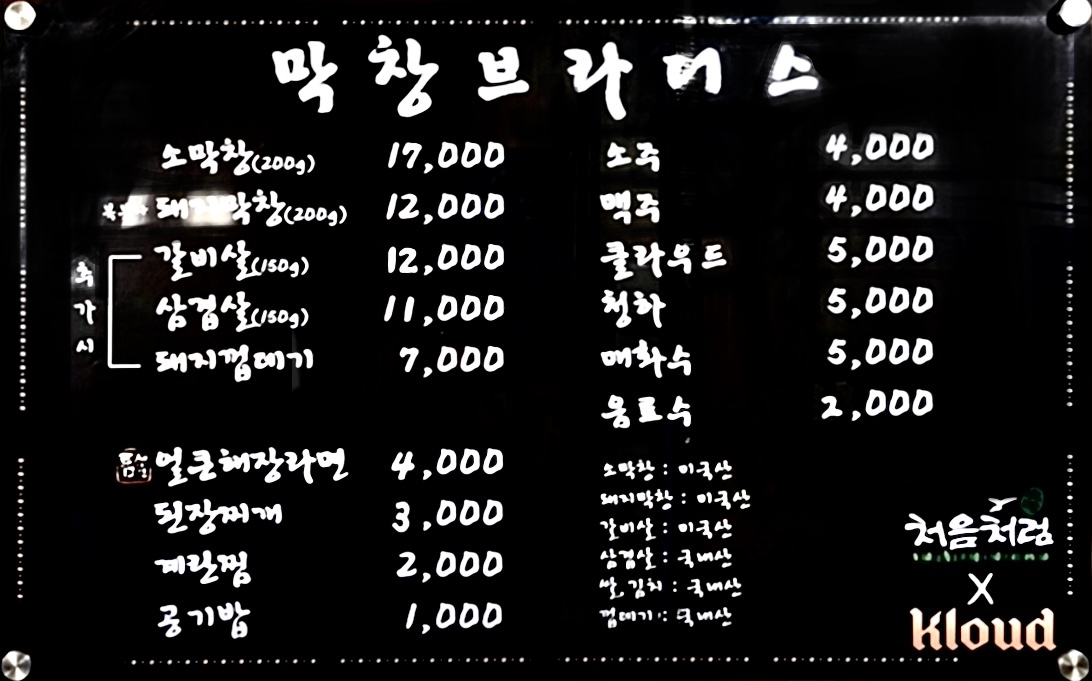 막창브라더스
소막창(200g) 17,000
돼지막창(200g) 12,000
추가시
갈비살(150g) 12,000
삼겹살(150g) 11,000
돼지껍데기 7,000
얼큰해장라면 4,000
된장찌개 3,000
계란찜 2,000
공기밥 1,000
소주 4,000
맥주 4,000
클라우드 5,000
청하 5,000
매화수 5,000
음료수 2,000
소막창 : 미국산
돼지막창 : 미국산
갈비살 : 미국산
삼겹살 : 국내산
쌀, 김치 : 국내산
껍데기 : 국내산
처음처럼
X
Kloud